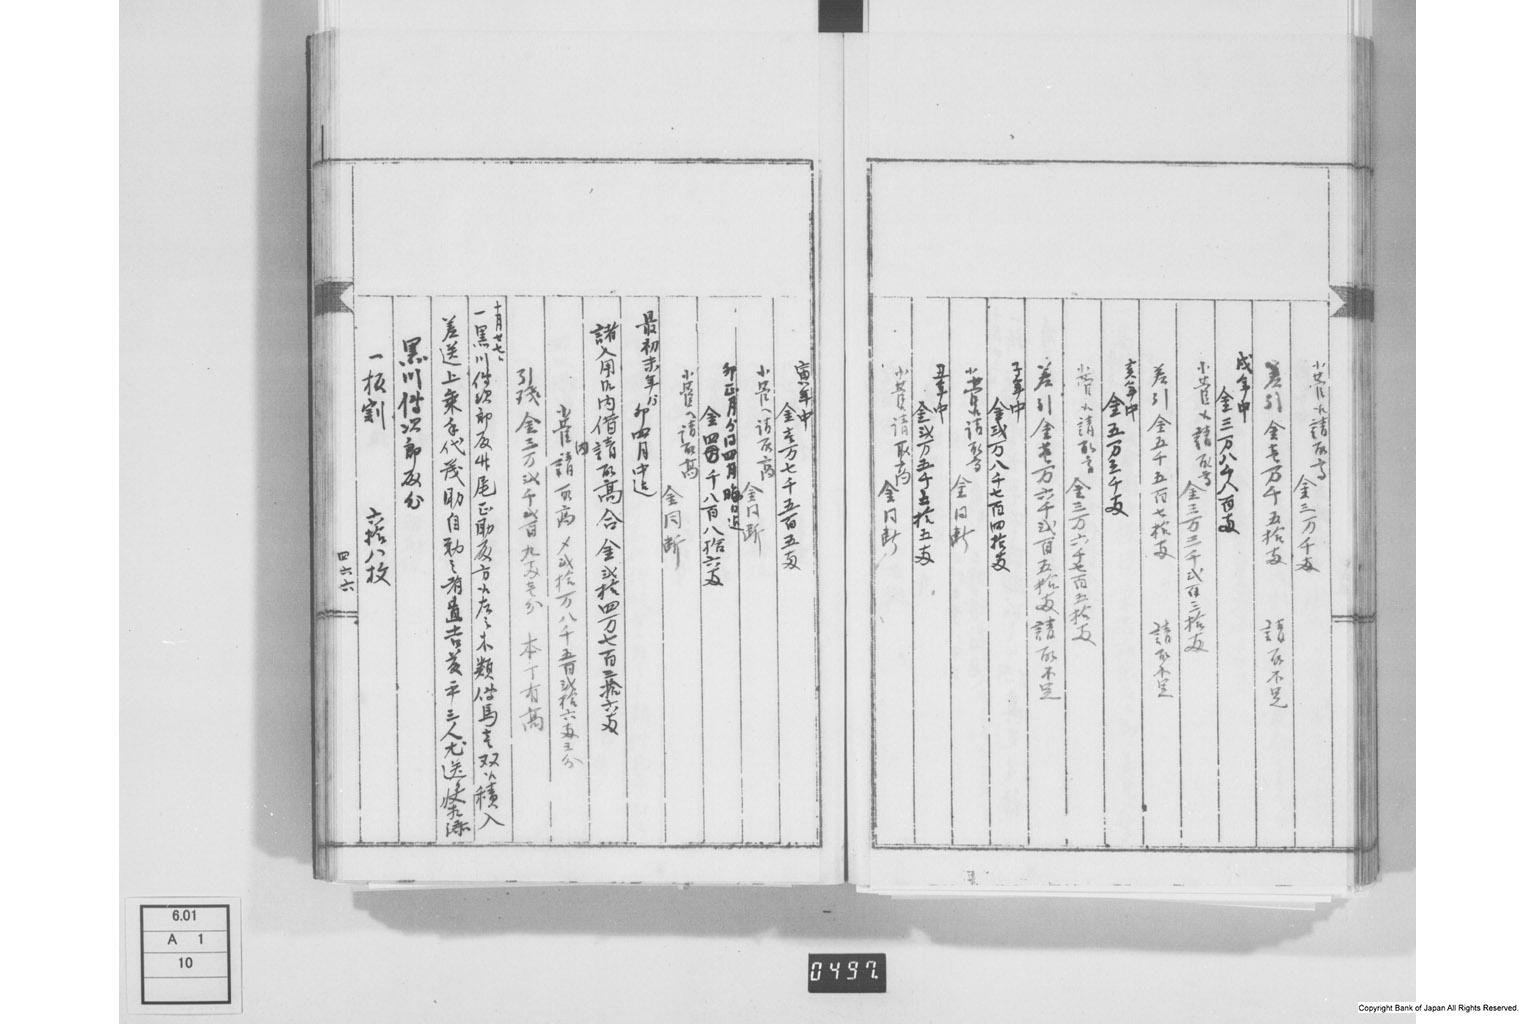 小菅ゟ請取高
金三万千両
差引 金壱万千五拾両 請取不足
戌年中
金三万八千八百両
小菅ゟ請取高
金三万三千弐百三拾両
差引 金五千五百七拾両 請取不足
亥年中
金五万三千両
小菅ゟ請取高
金三万六千七百五拾両
差引 金壱万六千弐百五拾両 請取不足
子年中
金弐万八千七百四拾両
小菅ゟ請取高
金同断
丑年中
金弐万五千五拾五両
小菅請取高
金同断
寅年中
金壱万七千五百五両
小菅ゟ請取高
金同断
卯正月分ゟ四月晦日迄
金四千八百八拾六両
小菅ゟ請取高
金同断
最初未年ゟ
卯四月中迄
諸入用凡内借請取高合 金弐拾四万七百三拾六両
内
小菅請取高 〆弐拾万八千五百弐拾六両三分
引残 金三万弐千弐百九両壱分 本丁有高
十月廿七日
一黒川 次郎殿 尾正助殿方 木類 馬壱双ゟ積入
差送上乗手代茂助自勤 直吉 平三人
黒川 次郎殿分
一板割 六拾八枚
四六六
6.01
A 1
10
0497
Copyright Bank of Japan All Rights Reserved.